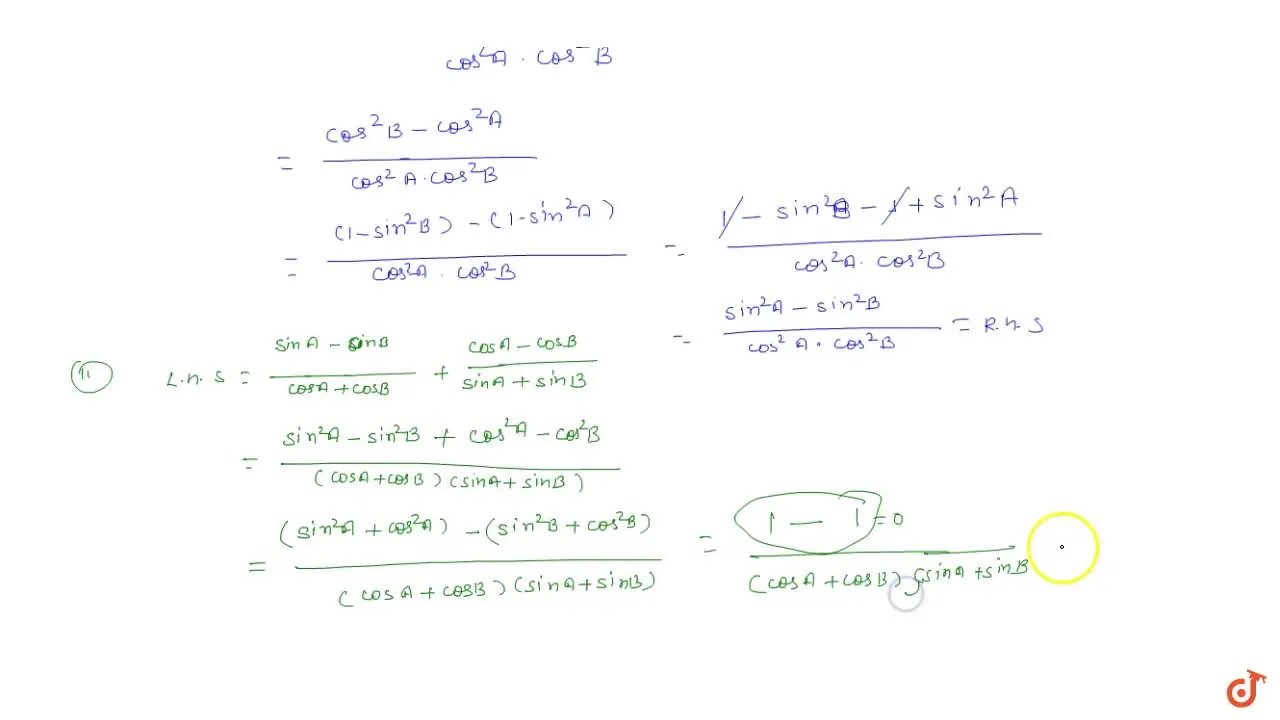 cos²A · cos²B
= (cos²B − cos²A) / (cos²A · cos²B)
= ((1−sin²B) − (1−sin²A)) / (cos²A · cos²B) = (1 − sin²B − 1 + sin²A) / (cos²A · cos²B)
= (sin²A − sin²B) / (cos²A · cos²B) = R.H.S
(ii) L.H.S = (sinA − sinB) / (cosA + cosB) + (cosA − cosB) / (sinA + sinB)
= (sin²A − sin²B + cos²A − cos²B) / ((cosA + cosB)(sinA + sinB))
= ((sin²A + cos²A) − (sin²B + cos²B)) / ((cosA + cosB)(sinA + sinB)) = (1 − 1 = 0) / ((cosA + cosB)(sinA + sinB